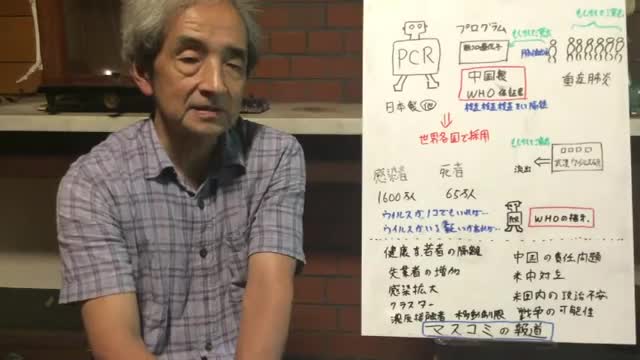 プログラム
PCR
中国製
WHO 保証書
日本製 他
検査検査検査そして隔離
重症肺炎
世界各国で採用
流出
武漢ウイルス研
感染者 死者
1600万人 65万人
ウイルスが1コでもいれば…
PCR
WHOの指示
健康な若者の隔離
失業者の増加
感染拡大
クラスター
濃厚接触者 移動制限
中国の責任問題
米中対立
米国内の政治不安
戦争の可能性
マスコミの報道